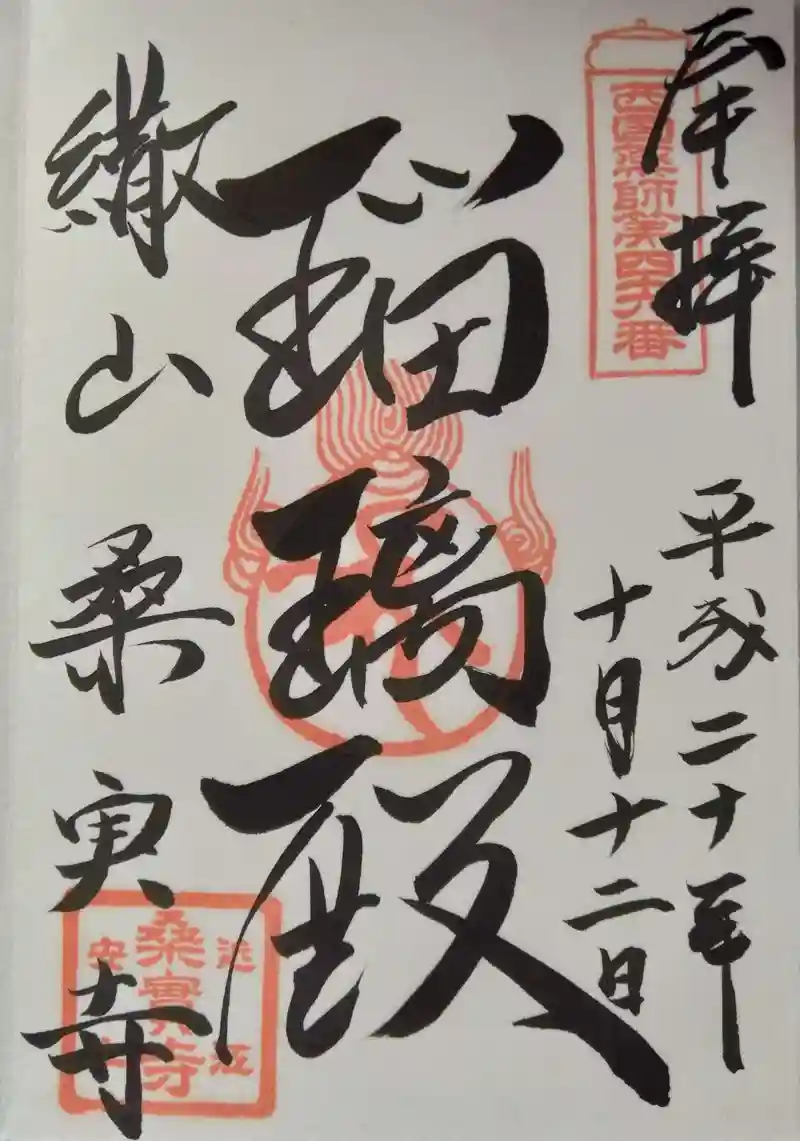 奉拝
西国薬師第四十六番
平成二十年
十月十二日
瑠璃殿
繖山
桑実寺
桑實寺